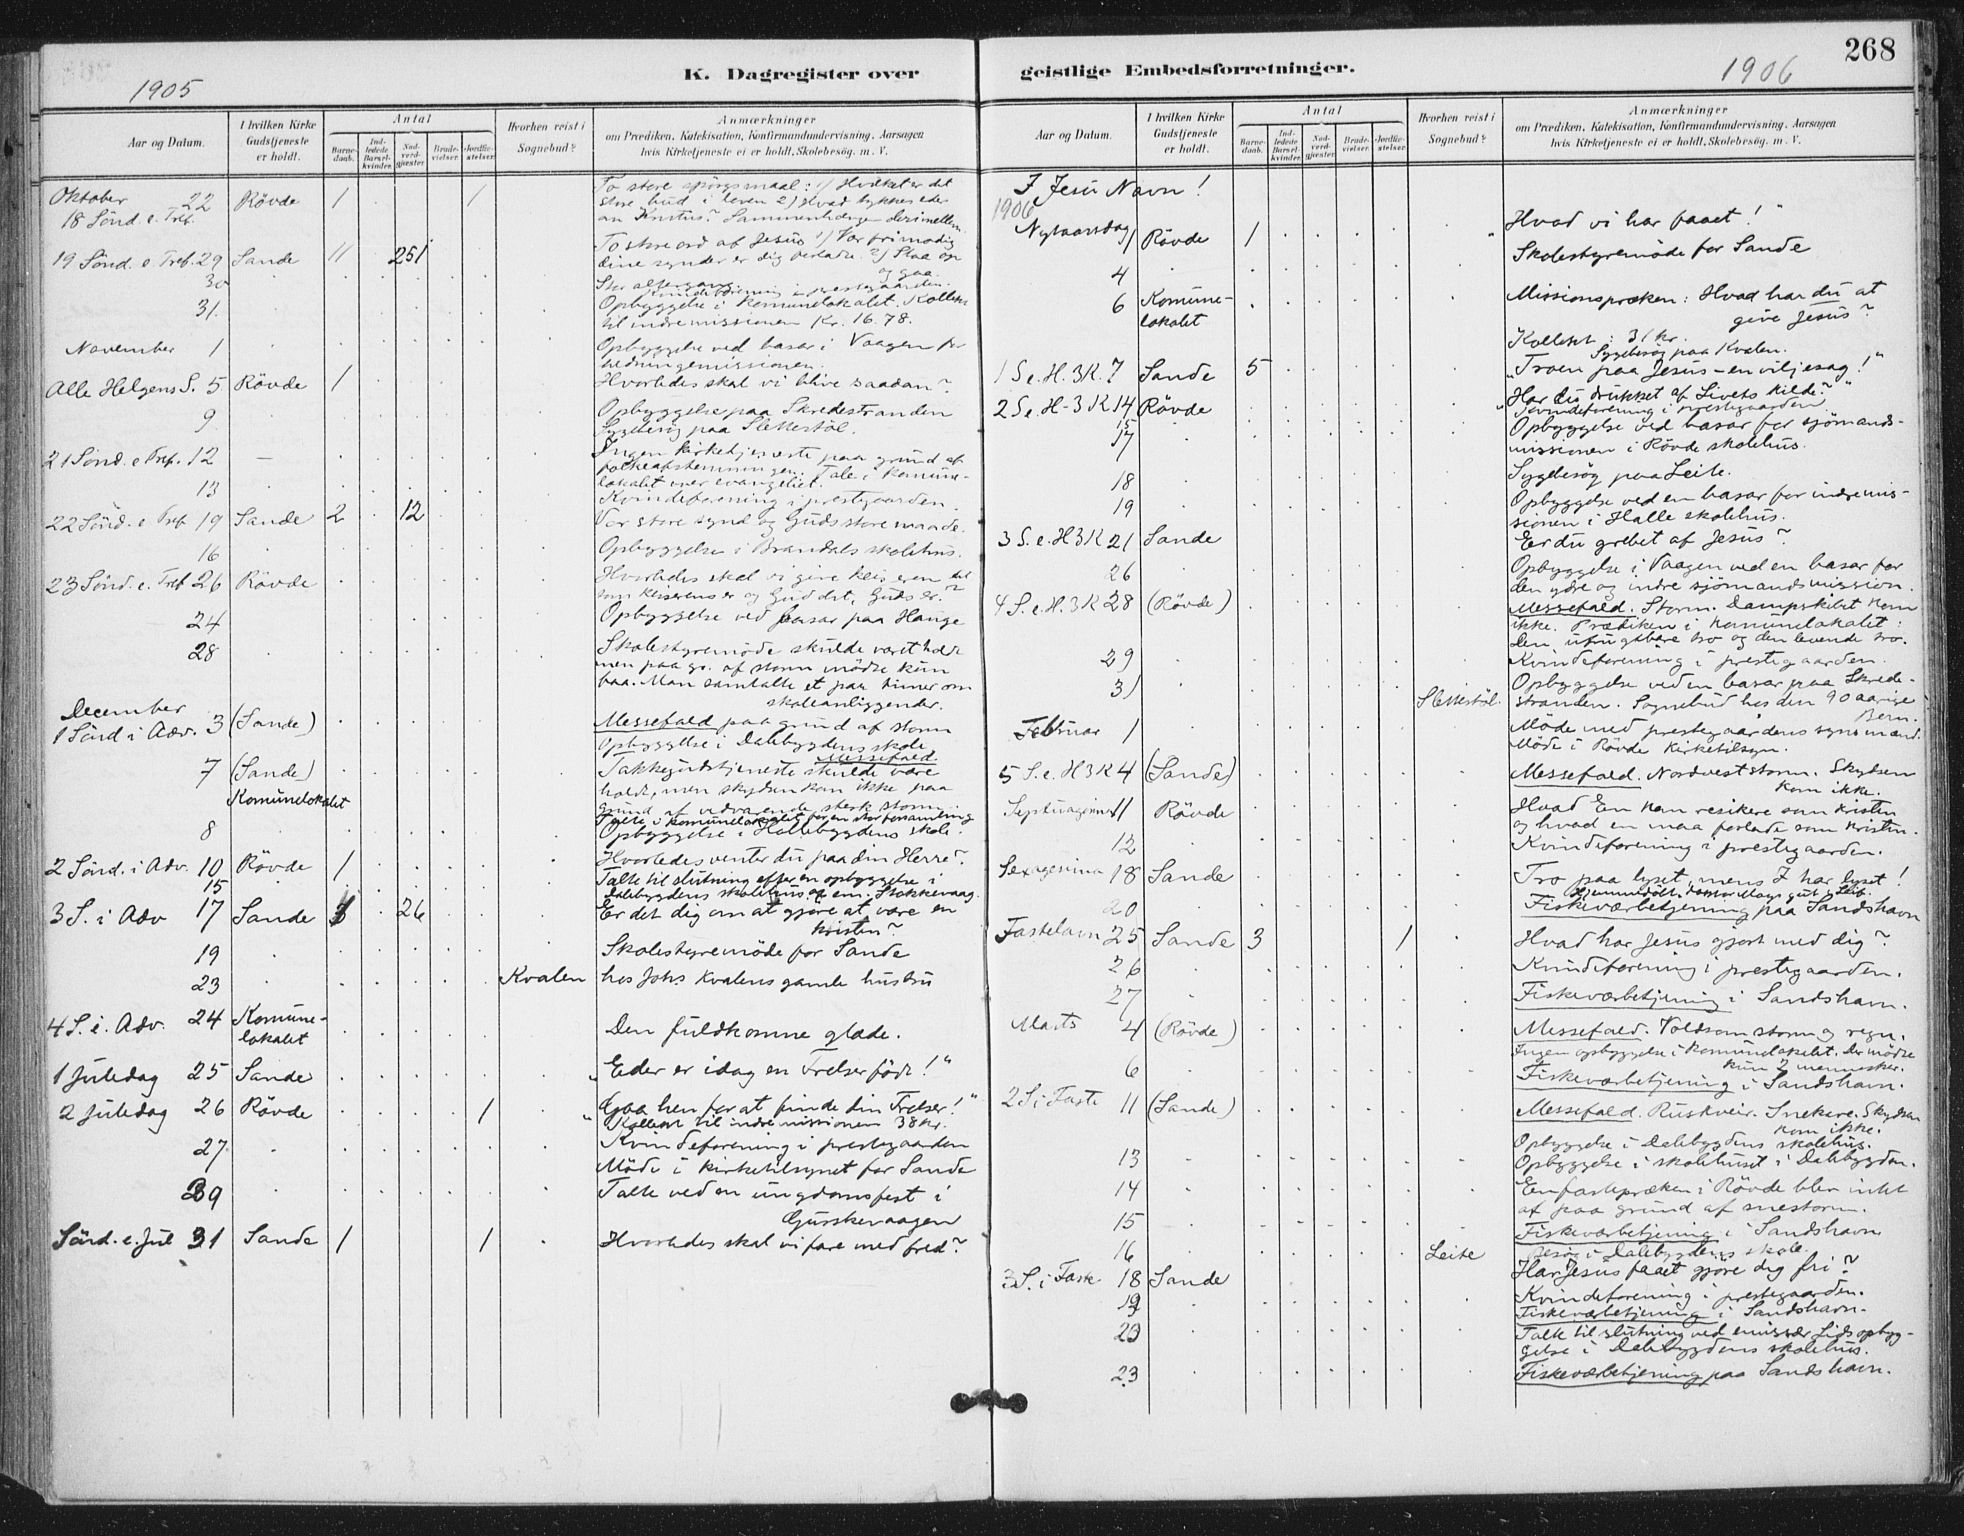 268
1905
K. Dagregister over
Aar og Datum.
I hvilken Kirke Gudstjeneste er holdt.
Antal
Barnedaab.
Indledede Barselkvinder.
Nadverdgjester.
Brudevielser.
Jordfæstelser.
Hvorhen reist i Sognebud?
Anmærkninger
om Prædiken, Katekisation, Konfirmandundervisning, Aarsagen
hvis Kirketjeneste ei er holdt, Skolebesøg. m. V.
Oktober 22 Rövde 1 1 To store spörgsmaal: 1) Hvilket er det
18 Sönd e. Tref. store bud i loven 2) Hvad tykkes eder
om Kristus? Sammenhængen derimellem.
19 Sönd. e. Tref. 29 Sande 11 251 To store ord af Jesus 1) Vær frimodig
dine synder er dig forladte. 2) Staa op
og gaa.
30 Stor altergang.
Kvindeforening i prestegaarden.
31. Opbyggelse i komunelokalet. Kollekt
til indremissionen Kr. 16.78.
November 1 Opbyggelse ved basar i Vaagen for
hedningemissionen.
Alle Helgens S. 5 Rövde 1 Hvorledes skal vi blive saadan?
9 Opbyggelse paa Skredestranden
Sygebesög paa Slettestöl.
21 Sönd. e Tref. 12 — Ingen kirketjeneste paa grund af
folkeafstemningen. Tale i komune-
lokalet over evangeliet.
13 Kvindeforening i prestegaarden.
22 Sönd. e Tref 19 Sande 2 12 Vor store synd og Guds store naade.
16 Opbyggelse i Brandals skolehus.
23 Sönd. e. Tref 26 Rövde Hvorledes skal vi give keiseren det
som keiserens er og Gud det, Guds er?
24 Opbyggelse ved basar paa Hauge
28 Skolestyremöde skulde været holdt
men paa gr. af storm mödte kun
baa. Man samtalte et par timer om
skoleanliggender.
December
1 Sönd i Adv. 3 (Sande) Messefald paa grund af storm
Opbyggelse i Dalebygdens skole
7 (Sande) Messefald.
Takkegudstjeneste skulde være
holdt, men skydsen kom ikke paa
Komunelokalet grund af vedvarende sterk storm.
Tale i komunelokalet for en stor forsamling
8 Opbyggelse i Hallebygdens skole.
2 Sönd. i Adv. 10 Rövde 1 Hvorledes venter du paa din Herre?
15 Talte til slutning efter en opbyggelse i
Dalebygdens skolehus af em. Stokkevaag.
3 S. i Adv 17 Sande 26 Er det dig om at gjøre at være en
kristen?
19 Skolestyremöde for Sande
23 Kvalen hos Johs Kvalens gamle hustru
4 S. i. Adv. 24 Komune-
lokalet Den fuldkomne glæde.
1 Juledag 25 Sande „Eder er idag en Frelser födt!"
2 Juledag 26 Rövde 1 „Gaa hen for at finde din Frelser!"
Kollekt til indremissionen 38 kr.
27 Kvindeforening i prestegaarden
Möde i kirketilsynet for Sande
29 Talte ved en ungdomsfest i
Gurskevaagen
Sönd. e. Jul 31 Sande 1 1 Hvorledes skal vi fare med fred?
geistlige Embedsforretninger.
1906
Aar og Datum.
I hvilken Kirke Gudstjeneste er holdt.
Antal
Barnedaab.
Indledede Barselkvinder.
Nadverdgjester.
Brudevielser.
Jordfæstelser.
Hvorhen reist i Sognebud?
Anmærkninger
om Prædiken, Katekisation, Konfirmandundervisning, Aarsagen
hvis Kirketjeneste ei er holdt, Skolebesøg. m. V.
I Jesu Navn!
1906
Nytaarsdag 1 Rövde 1 „Hvad vi har faaet!"
4 Skolestyremöde for Sande
6 Komune-
lokalet Missionspræken: Hvad har du at
give Jesus?
Kollekt: 31 kr.
Sygebesög paa Kvalen.
1 S e. H. 3 K. 7 Sande 5 „Troen paa Jesus – en viljesag!"
2 S e. H-3 K 14 Rövde „Har du drukket af Livets kilde?"
15 Kvindeforening i prestegaarden
17 Opbyggelse ved basar for sjömands-
missionen i Rövde skolehus.
18 Sygebesög paa Leite.
19 Opbyggelse ved en basar for indremis-
sionen i Halle skolehus.
3 S. e. H 3 K 21 Sande Er du grebet af Jesus?
26 Opbyggelse i Vaagen ved en basar for
den ydre og indre sjömandsmission.
4 S. e. H. 3 K 28 (Rövde) Messefald. Storm. Dampskibet kom
ikke. Prædiken i komunelokalet:
Den ufrugtbare tro og den levende tro.
29 Kvindeforening i prestegaarden.
31 Slettestöl. Opbyggelse ved en basar paa Skrede-
stranden. Sognebud hos den 90 aarige
Bern.
Februar 1 Möde med prestegaardens synsmænd.
Möde i Rövde kirketilsyn.
5 S. e. H 3 K 4 (Sande) Messefald. Nordveststorm. Skydsen
kom ikke.
Septuagesima 11 Rövde Hvad En kan resikere som kristen
og hvad en maa forlade som kristen.
12 Kvindeforening i prestegaarden.
Sexagesima 18 Sande Tro paa lyset, mens I har lyset!
20 Fiskeværbetjening paa Sandshavn
Fastelavn 25 Sande 3 1 Hvad har Jesus gjort med dig?
26 Kvindeforening i prestegaarden.
27 Fiskeværbetjening i Sandshavn.
Marts 4 (Rövde) Messefald. Voldsom storm og regn.
Ingen opbyggelse i komunelokalet. Der mödte
kun 2 mennesker.
6 Fiskeværbetjening i Sandshavn.
2 S i Faste 11 (Sande) Messefald. Ruskveir. Snekave. Skydsen
kom ikke.
Opbyggelse i Dalebygdens skolehus.
13 Opbyggelse i skolehuset i Dalebygden.
14 En fastepræken i Rövde blev intet
af paa grund af snestorm.
15 Fiskeværbetjening i Sandshavn
16 Leite Besög i Dalebygdens skole.
3 S. i Faste 18 Sande Har Jesus faaet gjöre dig fri?
19 Kvindeforening i prestegaarden.
Fiskeværbetjening i Sandshavn.
20 Talte til slutning ved emissær Lids opbyg-
gelse i Dalebygdens skolehus.
23 Fiskeværbetjening paa Sandshavn.